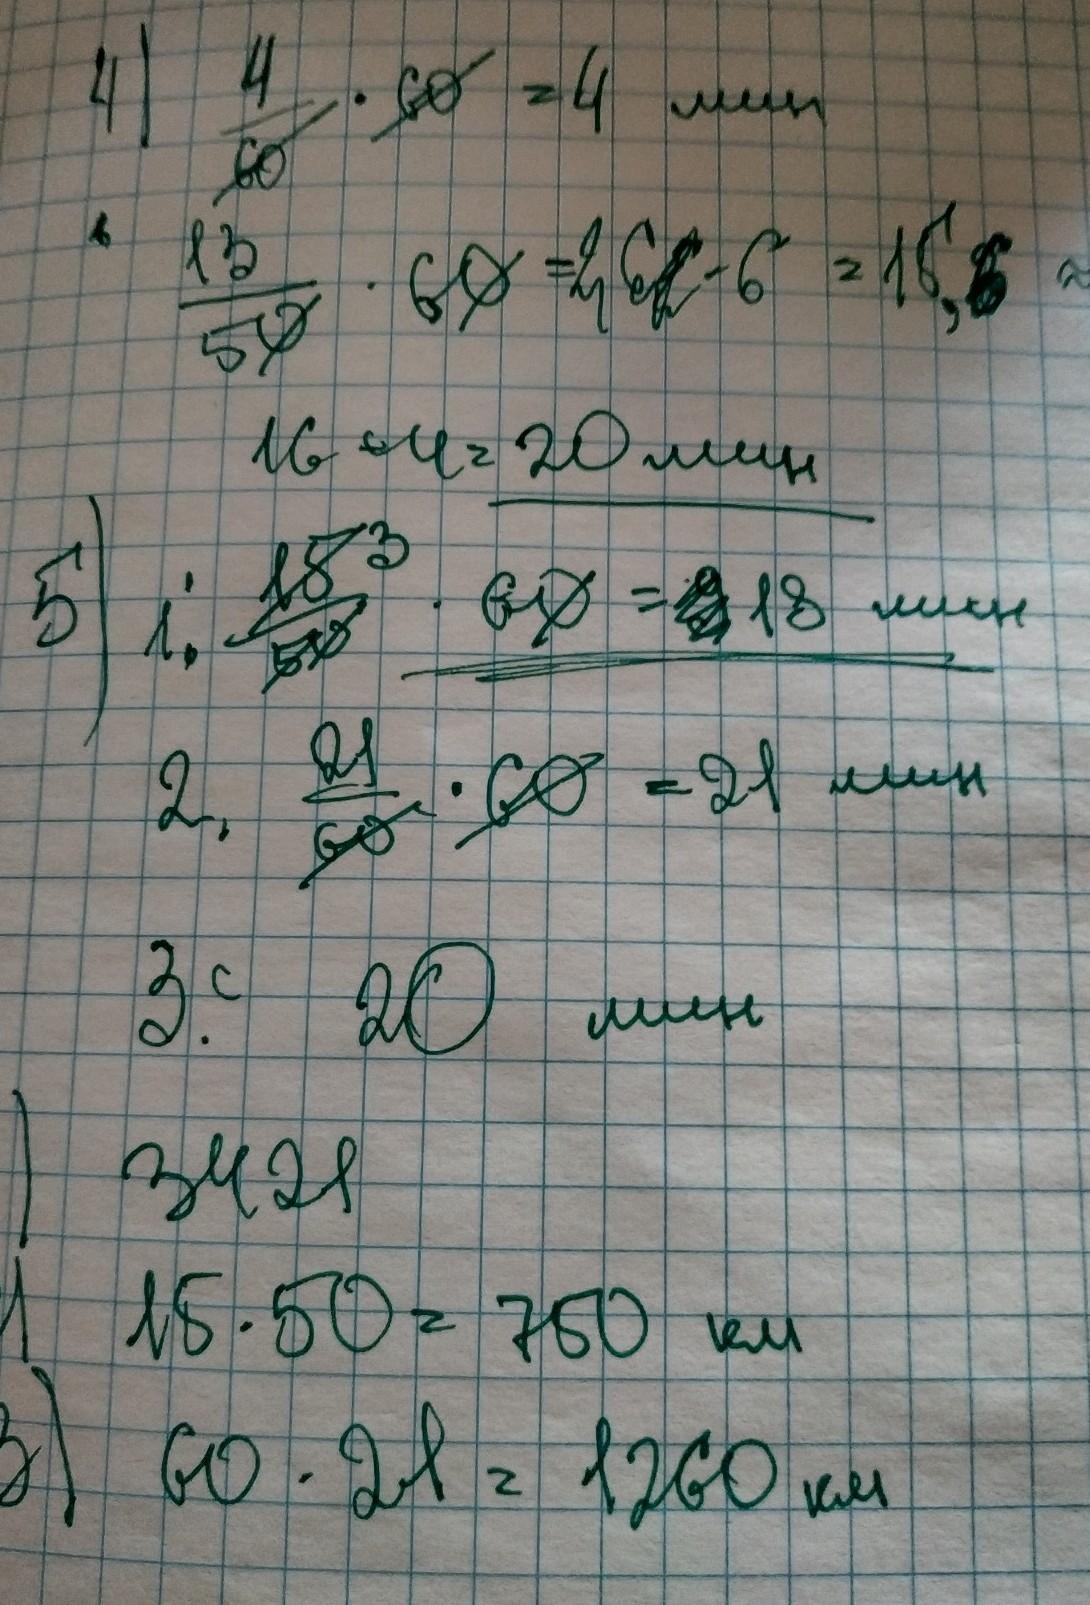 4) 4/60 · 60 = 4 мин
13/50 · 60 = 2,6 · 6 = 15,6 ≈
16 + 4 = 20 мин
5) 1. 15 3/50 · 60 = 18 мин
2. 21/60 · 60 = 21 мин
3. 20 мин
) 3421
15 · 50 = 750 км
3) 60 · 21 = 1260 км